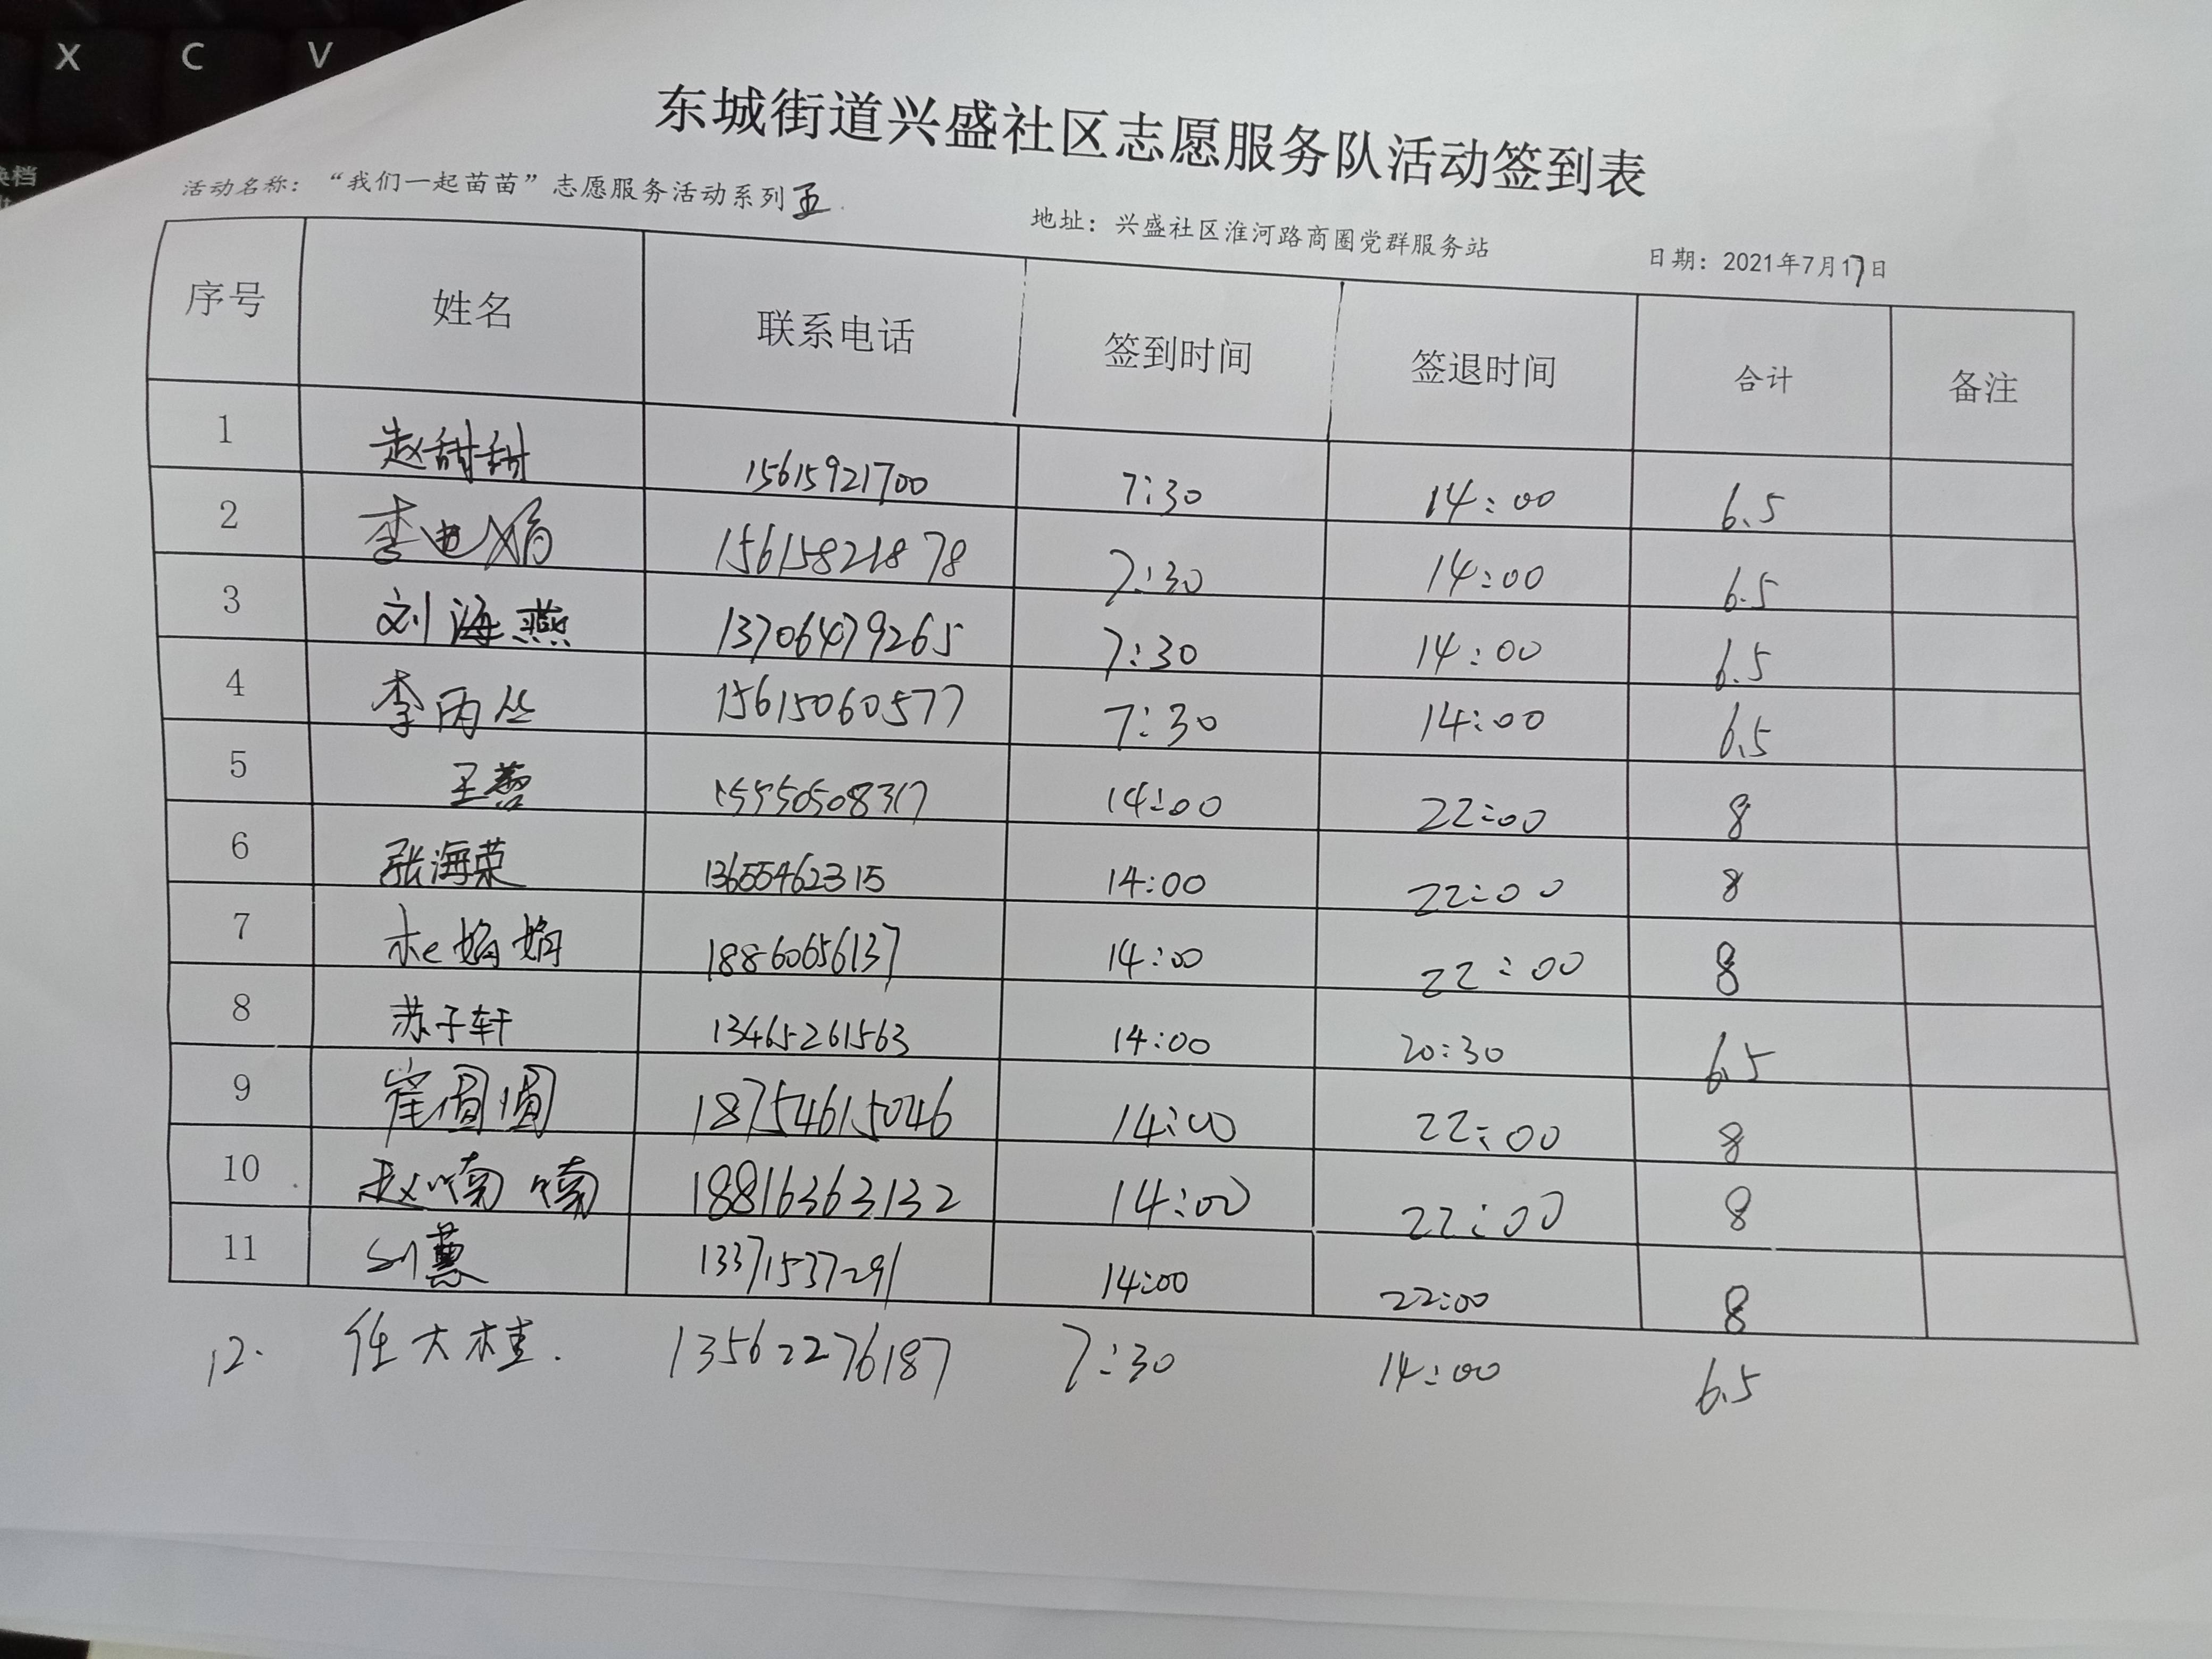 X C V
换档
东城街道兴盛社区志愿服务队活动签到表
活动名称：“我们一起苗苗”志愿服务活动系列五 地址：兴盛社区淮河路商圈党群服务站 日期：2021年7月17日
序号 姓名 联系电话 签到时间 签退时间 合计 备注
1 赵甜甜 15615921700 7:30 14:00 6.5
2 李 15615821878 7:30 14:00 6.5
3 刘海燕 13706479265 7:30 14:00 6.5
4 李丙丛 15615060577 7:30 14:00 6.5
5 王蕾 15550508317 14:00 22:00 8
6 张海荣 13655462315 14:00 22:00 8
7 杜娟娟 18860656137 14:00 22:00 8
8 苏子轩 13465261563 14:00 20:30 6.5
9 崔圆圆 18754615046 14:00 22:00 8
10 赵喃喃 18816363132 14:00 22:00 8
11 刘蕙 13371537291 14:00 22:00 8
12. 任大桂. 13562276187 7:30 14:00 6.5